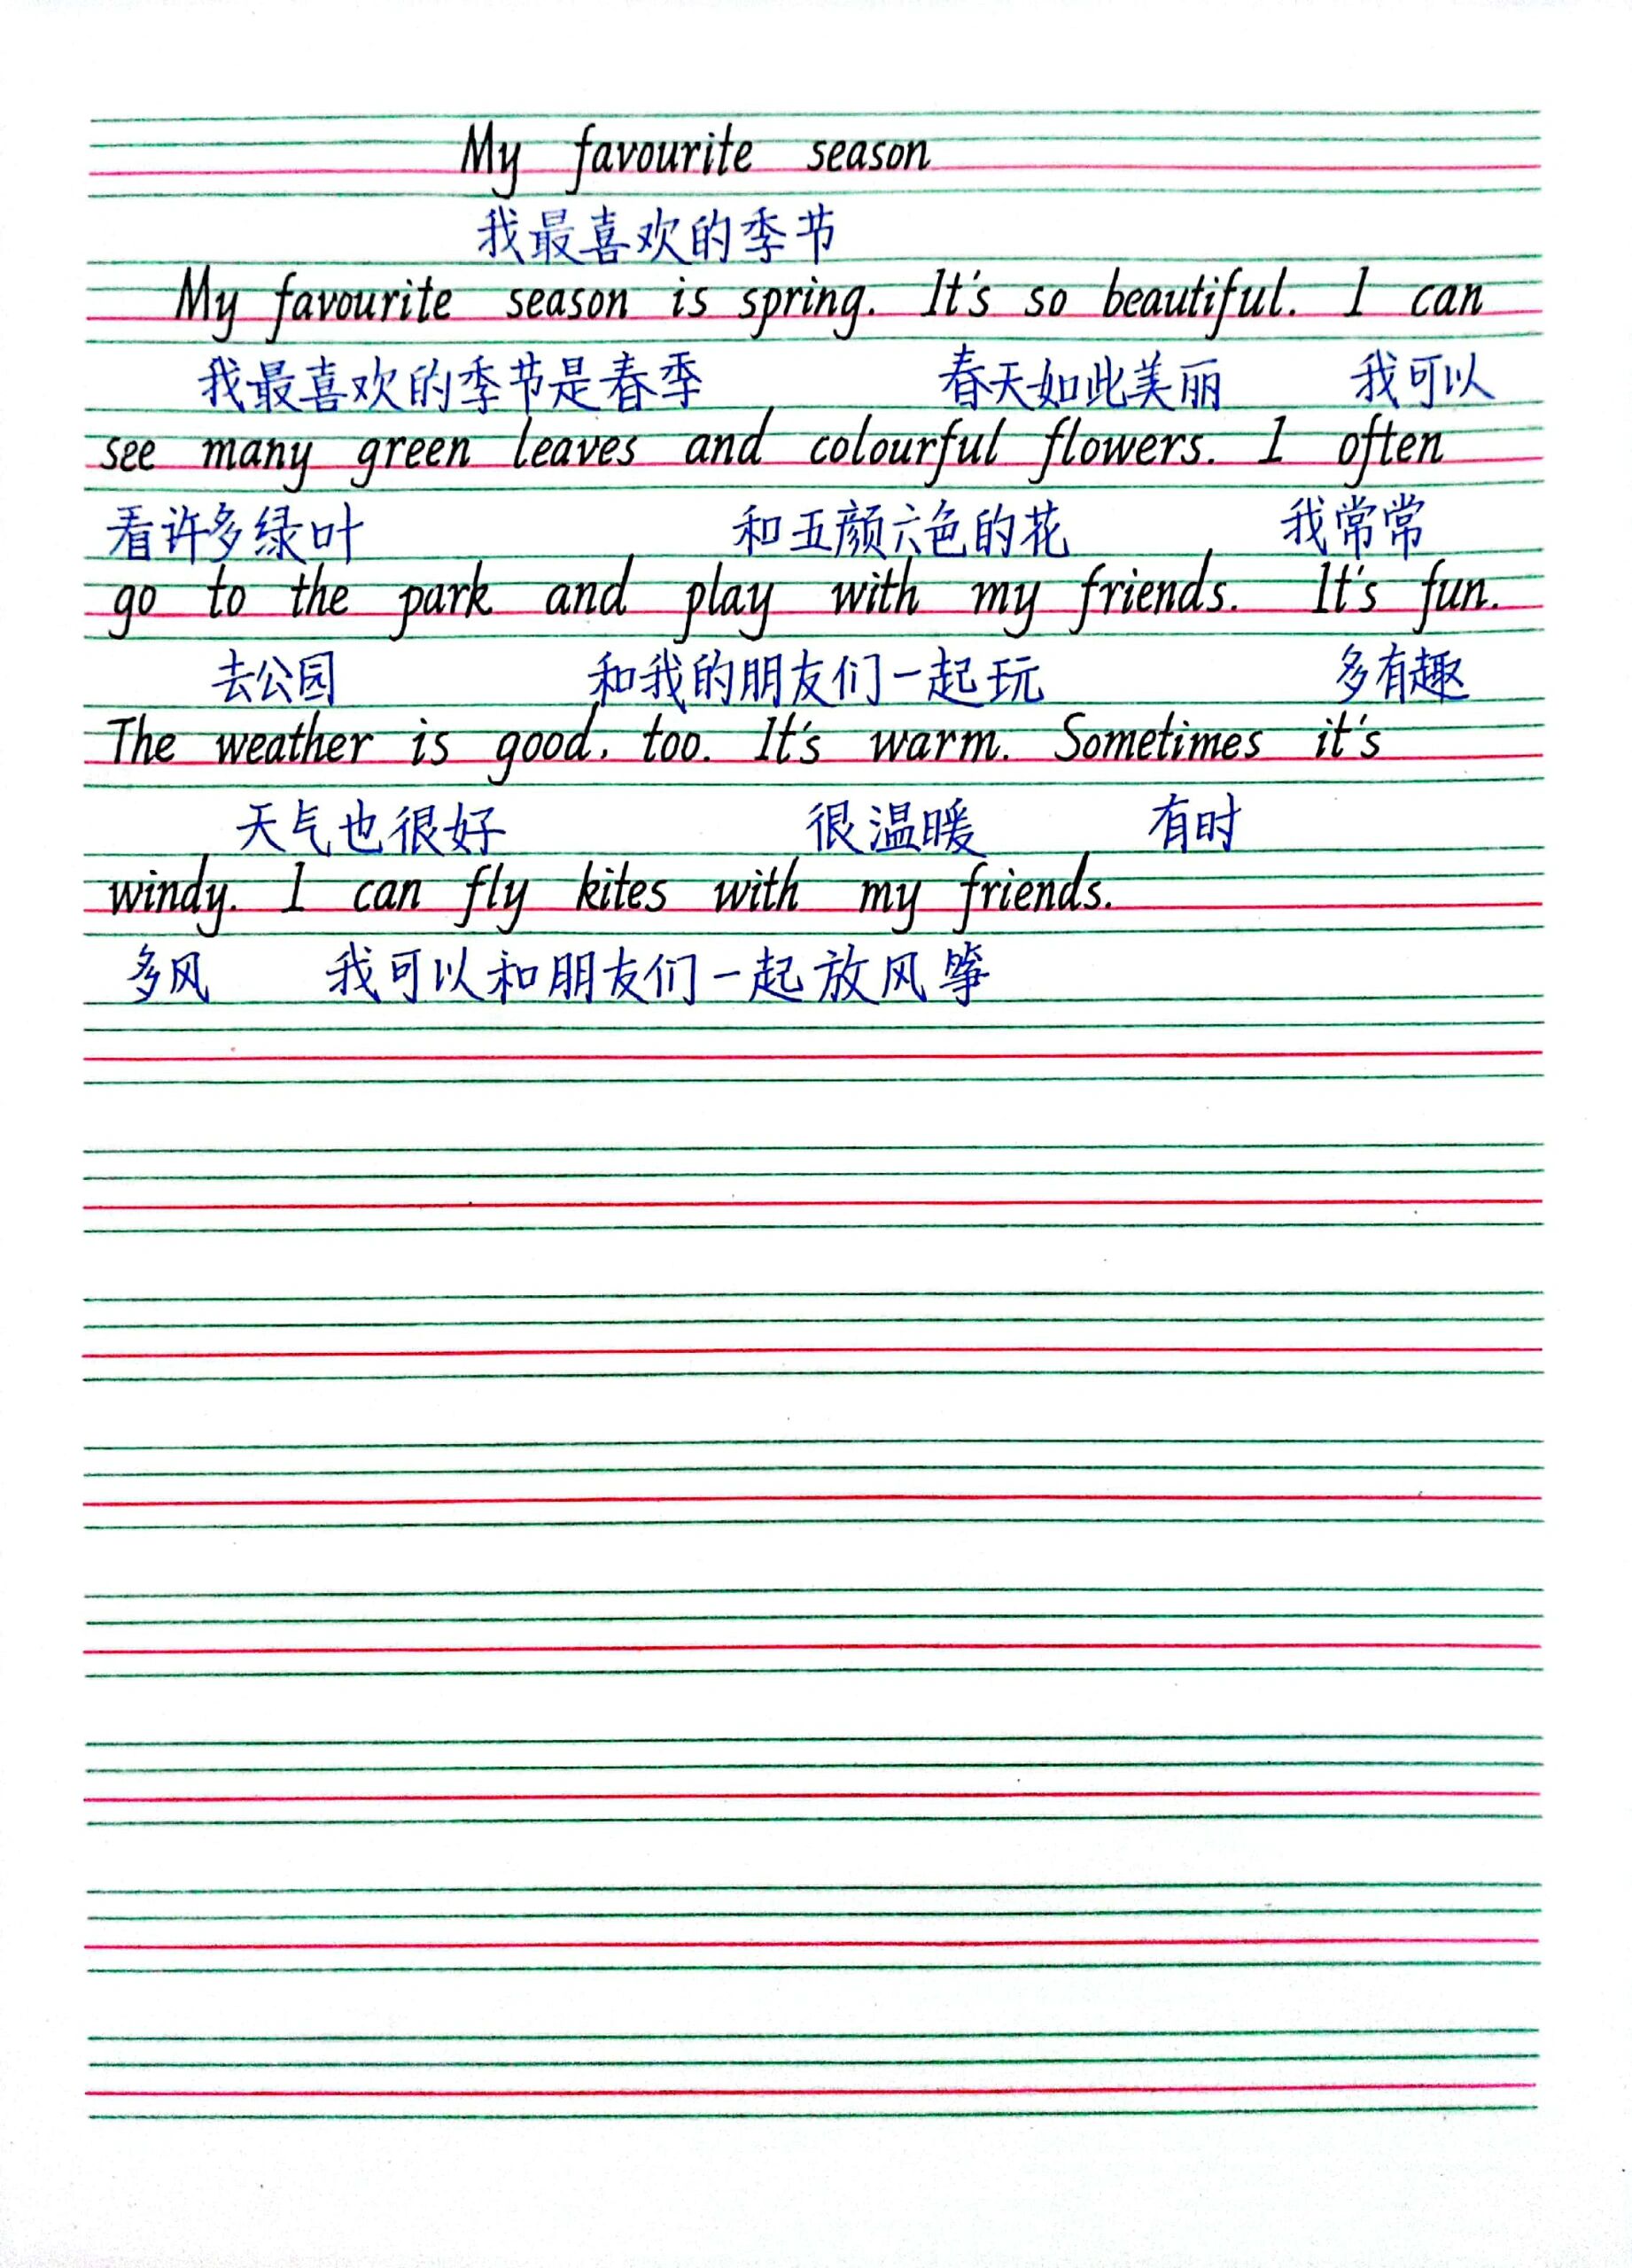 My favourite season
我最喜欢的季节
My favourite season is spring. It's so beautiful. I can
我最喜欢的季节是春季 春天如此美丽 我可以
see many green leaves and colourful flowers. I often
看许多绿叶 和五颜六色的花 我常常
go to the park and play with my friends. It's fun.
去公园 和我的朋友们一起玩 多有趣
The weather is good, too. It's warm. Sometimes it's
天气也很好 很温暖 有时
windy. I can fly kites with my friends.
多风 我可以和朋友们一起放风筝